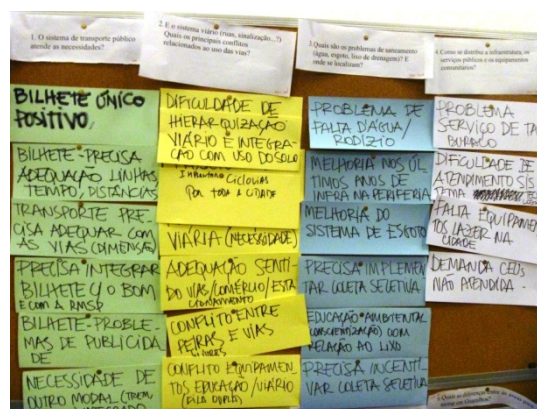 1. O sistema de transporte público
atende as necessidades?
BILHETE ÚNICO
POSITIVO,
BILHETE - PRECISA
ADEQUAÇÃO LINHAS
TEMPO, DISTÂNCIAS
TRANSPORTE PRE-
CISA ADEQUAR COM
AS VIAS (DIMENSÃO)
PRECISA INTEGRAR
BILHETE C/ O BOM
E COM A RMSP
BILHETE - PROBLE-
MAS DE PUBLICIDA
DE
NECESSIDADE DE
OUTRO MODAL (TREM,
2. E o sistema viário (ruas, sinalização...?)
Quais os principais conflitos
relacionados ao uso das vias?
DIFICULDADE DE
HIERARQUIZAÇÃO
VIÁRIO E INTEGRA-
ÇÃO COM USO DO SOLO
Implantar Ciclovias
por toda a cidade
VIÁRIA (NECESSIDADE)
ADEQUAÇÃO SENTI-
DO VIAS/COMÉRCIO/ESTA
CIONAMENTO
CONFLITO ENTRE
FEIRAS E VIAS
LIVRES
CONFLITO EQUIPAMEN-
TOS EDUCAÇÃO/VIÁRIO
3. Quais são os problemas de saneamento
(água, esgoto, lixo de drenagem)? E
onde se localizam?
PROBLEMA DE
FALTA D'ÁGUA/
RODÍZIO
MELHORIA NOS ÚL-
TIMOS ANOS DE
INFRA NA PERIFERIA
MELHORIA DO
SISTEMA DE ESGOTO
PRECISA IMPLEMEN
TAR COLETA SELETIVA
EDUCAÇÃO AMBIENTAL
(CONSCIENTIZAÇÃO) COM
RELAÇÃO AO LIXO
PRECISA INCENTI-
VAR COLETA SELETIVA
4. Como se distribui a infraestrutura, os
serviços públicos e os equipamentos
comunitários?
PROBLEMA
SERVIÇO DE TA
BURACO
DIFICULDADE DE
ATENDIMENTO SIS
TEMA
FALTA EQUIPAMEN
TOS LAZER NA
CIDADE
DEMANDA CEUS
NÃO ATENDIDA.